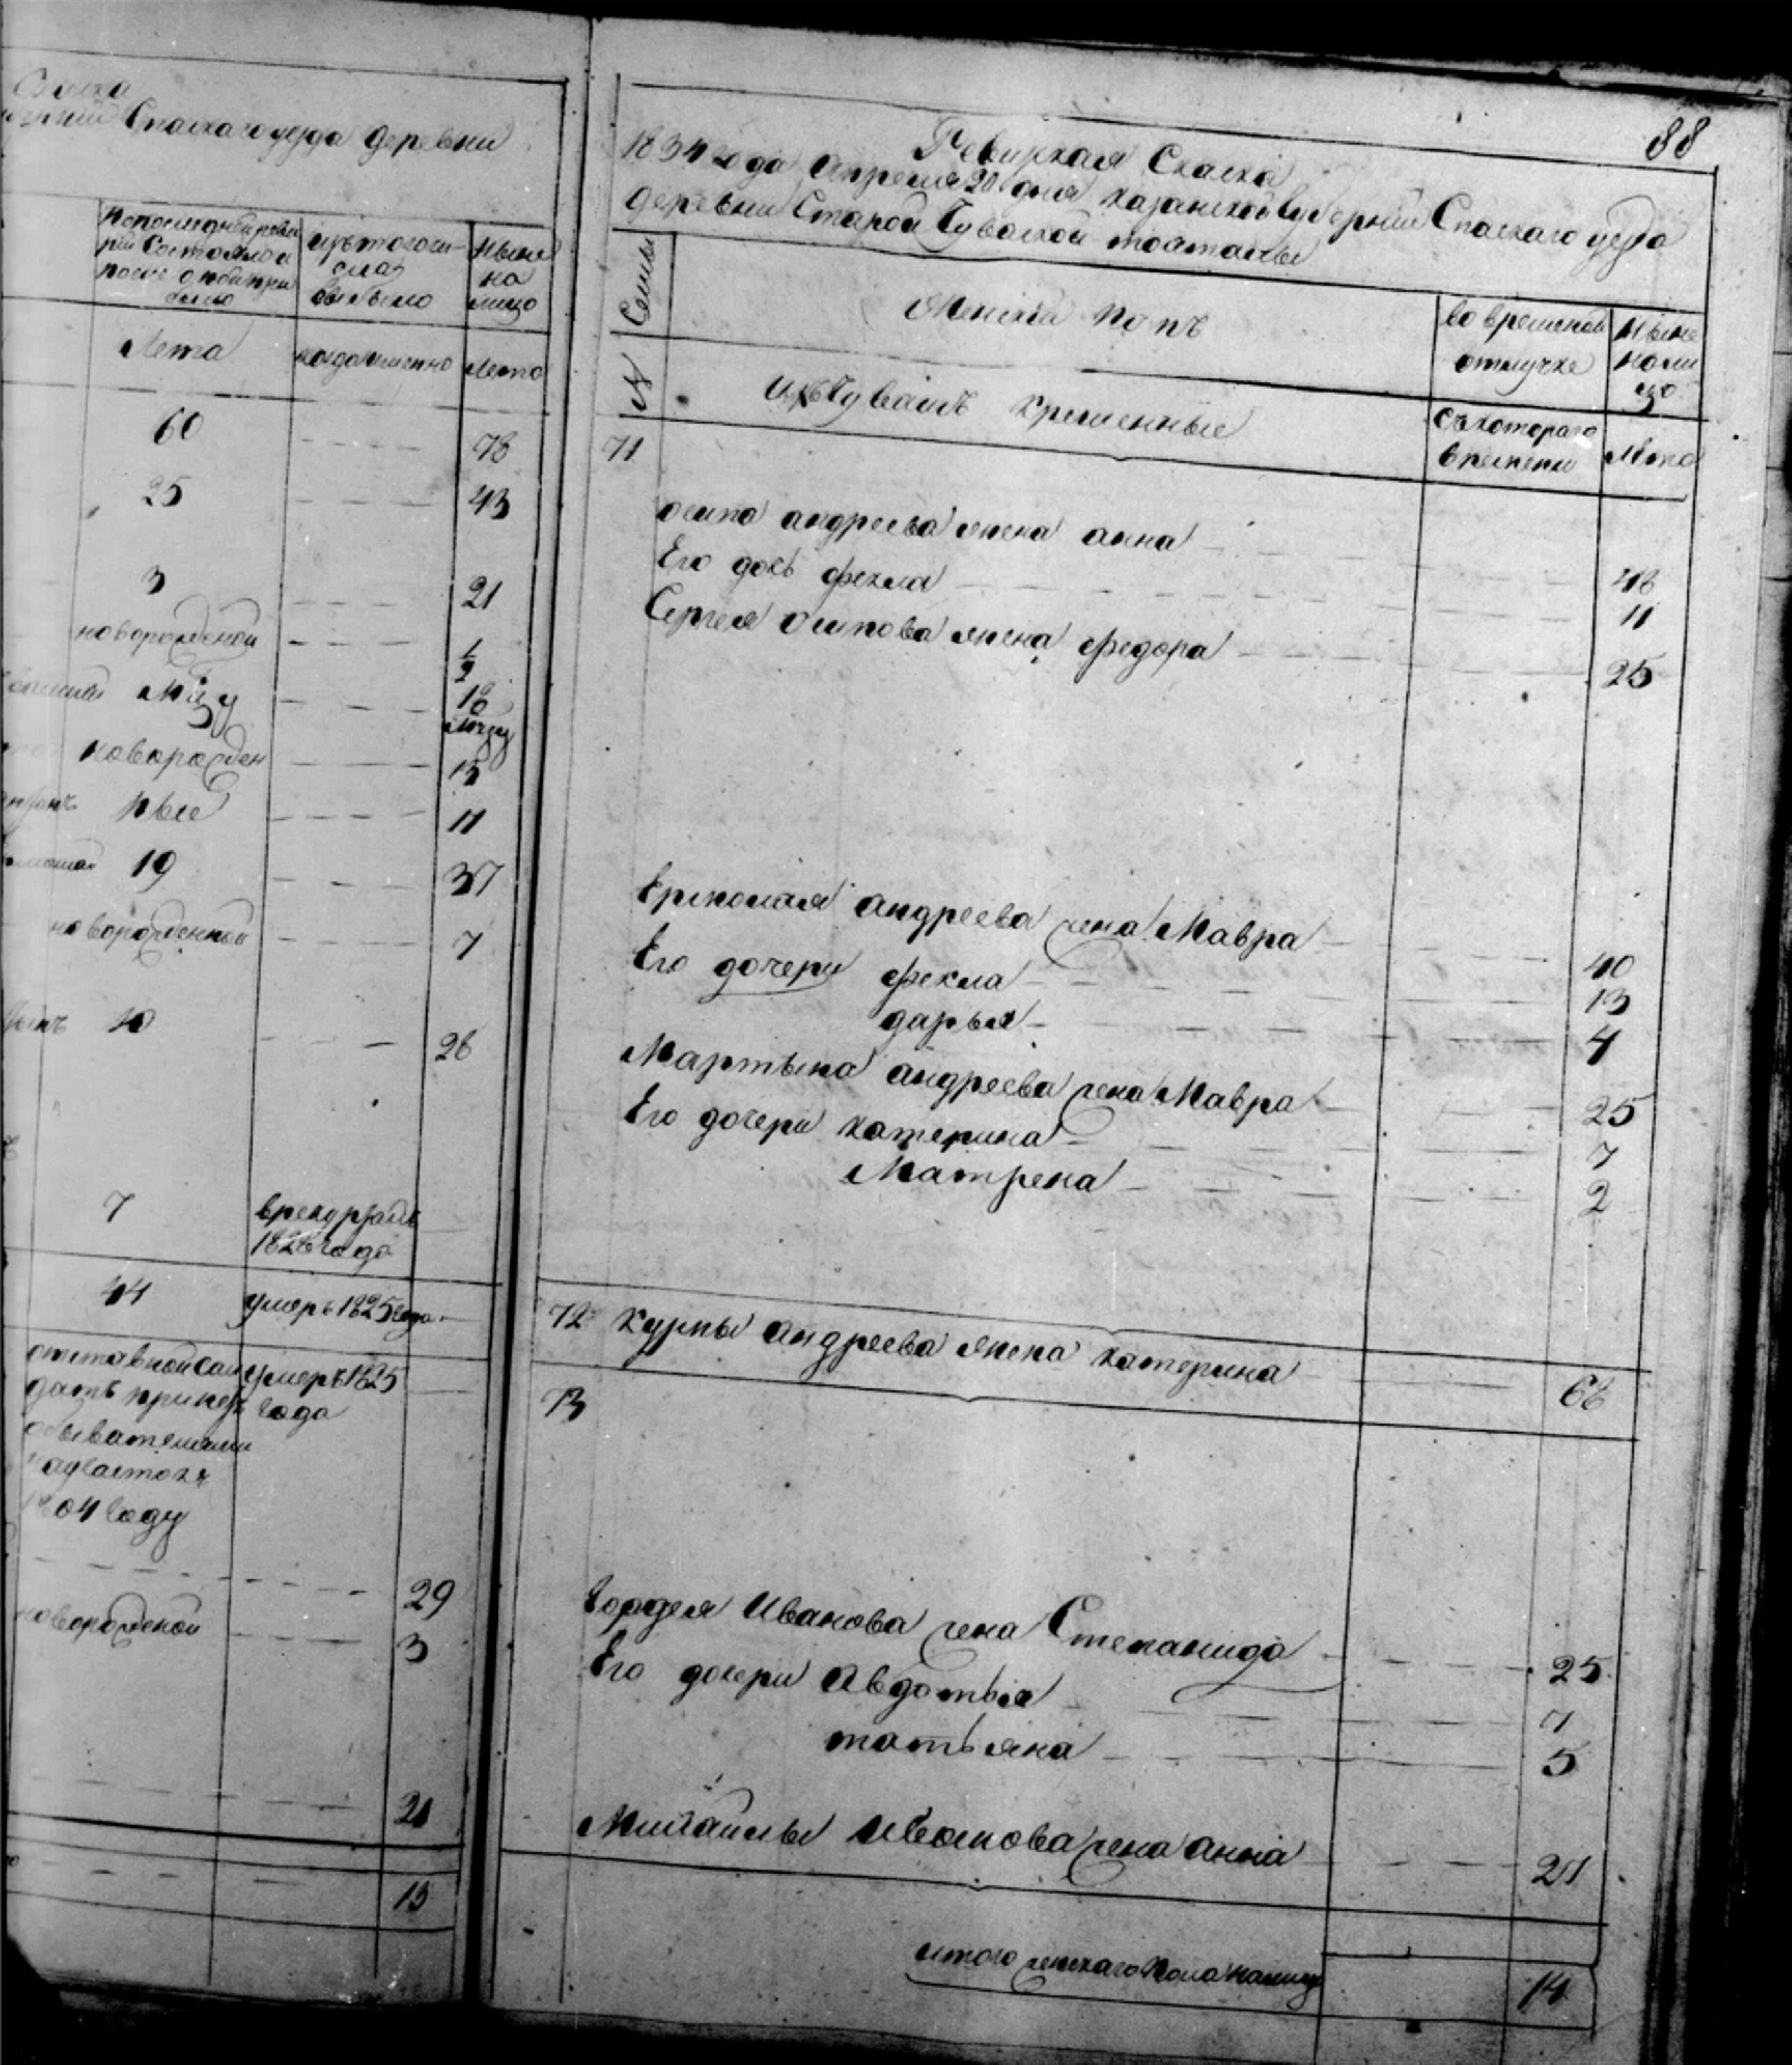 Спаскаго уезда Деревни
по последней реви
зіи состояло и
после онойпри
было
изтогочи-
сла
выбыло
Ныне
на
лицо
Лета
когдаименно
Лета
60 78
25 43
3 21
новорожденой 1/2
18
новорожден 15
ные 11
19 37
новорожденной 7
10 26
7 врекруты
1828года
44 умеръ 1825года
отставной сол умеръ 1825
датъ года
обывателями
1804 году
29
новорожденой 3
21
15
88
Ревизская Сказка
1834 года апреля 20 дня казанской губерніи Спаскаго уезда
деревни Старой Чуваской майны
Семьи
№
Женскій полъ
во временной
отлучке
Ныне
нали
цо
изъ Чувашъ крещенные
съ котораго
времени
Лета
71
осипа андреева жена анна 48
Его дочь фекла 11
Сергея осипова жена федора 25
Ермолая андреева жена Мавра 40
Его дочери фекла 13
дарья 4
Мартына андреева жена Мавра 25
Его дочери катерина 7
Матрена 2
72 кузмы андреева жена катерина 66
73
Гордея Иванова жена Степанида 25
Его дочери Авдотья 7
татьяна 5
Михайлы Иванова жена анна 21
итого женскаго пола налицо 14